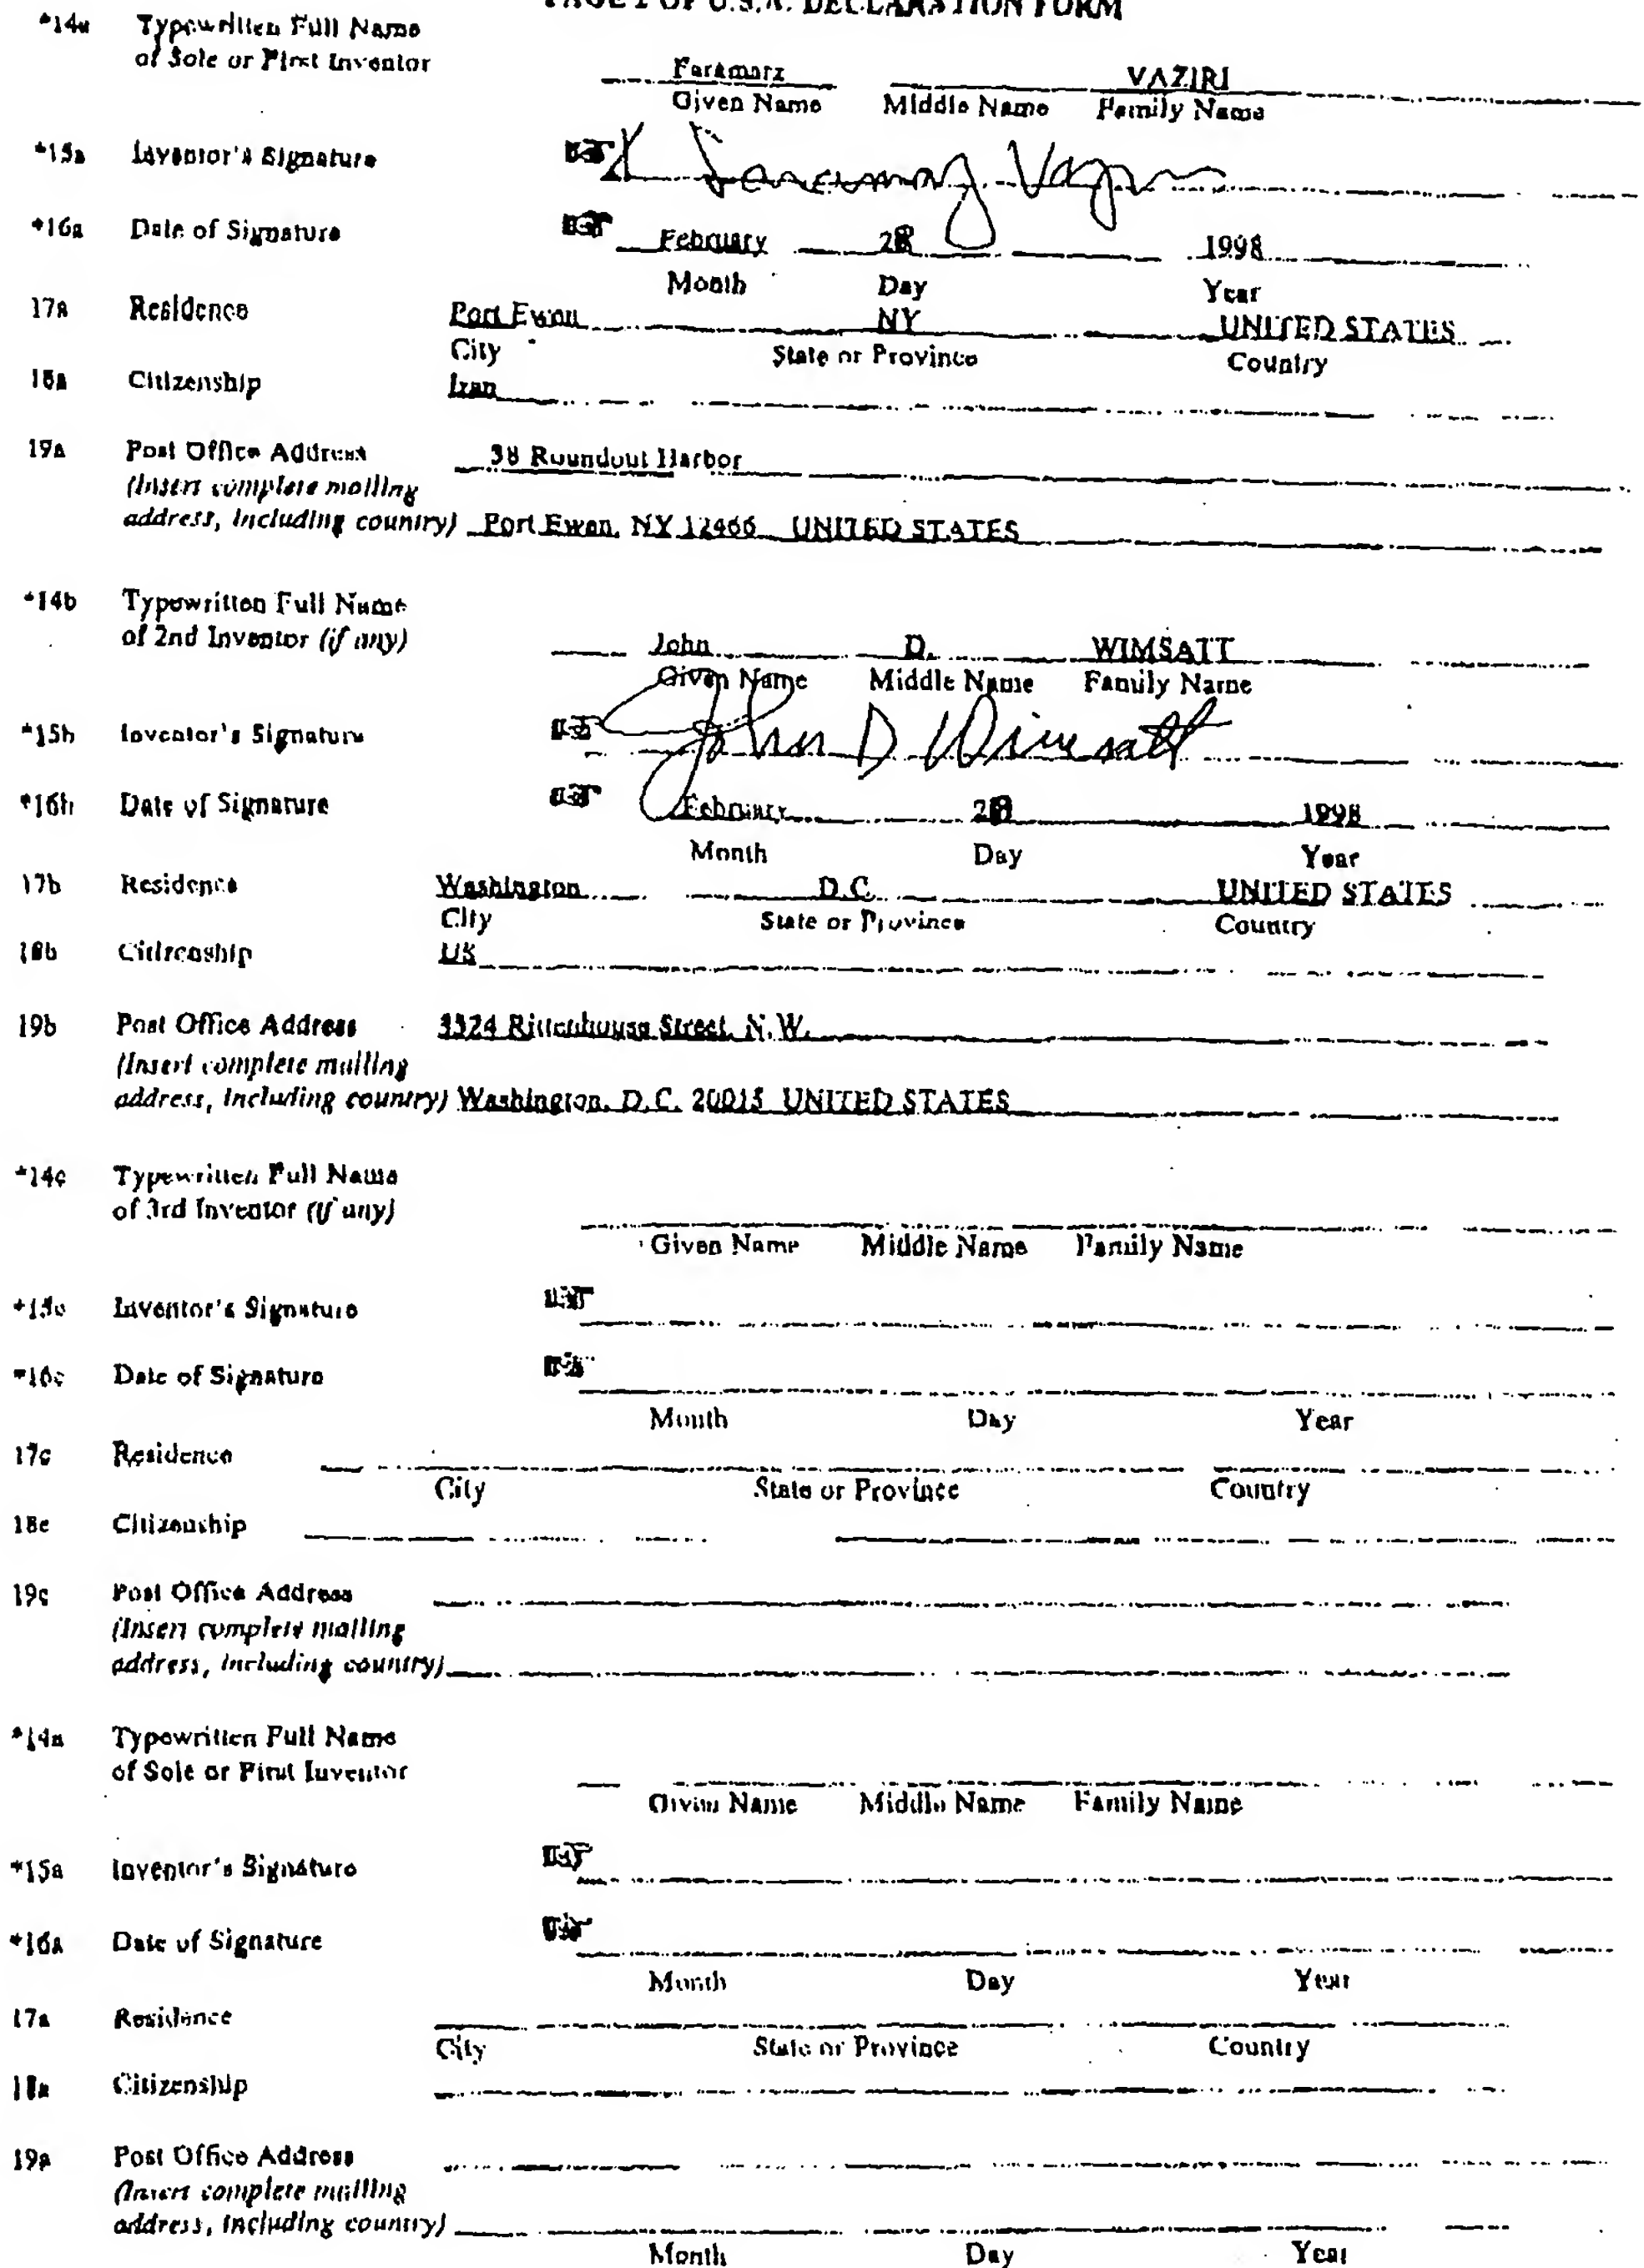 PAGE 2 OF U.S.A. DECLARATION FORM
*14a Typewritten Full Name
of Sole or First Inventor
Faramarz VAZIRI
Given Name Middle Name Family Name
*15a Inventor's Signature X Faramarz Vaziri
*16a Date of Signature February 28 1998
Month Day Year
17a Residence Port Ewen NY UNITED STATES
City State or Province Country
18a Citizenship Iran
19a Post Office Address 38 Roundout Harbor
(Insert complete mailing
address, including country) Port Ewen, NY 12466 UNITED STATES
*14b Typewritten Full Name
of 2nd Inventor (if any)
John D. WIMSATT
Given Name Middle Name Family Name
*15b Inventor's Signature John D Wimsatt
*16b Date of Signature February 1998
Month Day Year
17b Residence Washington D.C. UNITED STATES
City State or Province Country
18b Citizenship
19b Post Office Address 3324 Rittenhouse Street, N.W.
(Insert complete mailing
address, including country) Washington, D.C. 20015 UNITED STATES
*14c Typewritten Full Name
of 3rd Inventor (if any)
Given Name Middle Name Family Name
*15c Inventor's Signature
*16c Date of Signature
Month Day Year
17c Residence
City State or Province Country
18c Citizenship
19c Post Office Address
(Insert complete mailing
address, including country)
*14a Typewritten Full Name
of Sole or First Inventor
Given Name Middle Name Family Name
*15a Inventor's Signature
*16a Date of Signature
Month Day Year
17a Residence
City State or Province Country
18a Citizenship
19a Post Office Address
(Insert complete mailing
address, including country)
Month Day Year